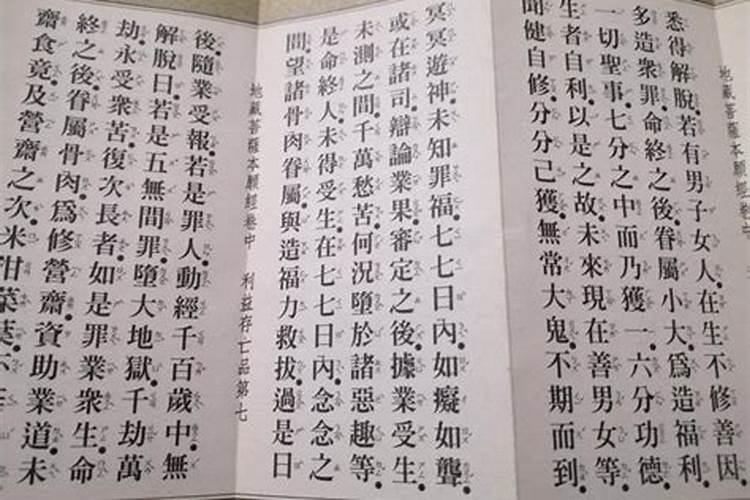 地藏菩薩本願經卷中
悉得解脫。若有男子女人。在生不修善因。
多造眾罪。命終之後。眷屬小大。為造福利。
一切聖事。七分之中而乃獲一。六分功德。
生者自利。以是之故。未來現在善男女等。
聞健自修。分分己獲。無常大鬼。不期而到。
冥冥遊神。未知罪福。七七日內。如癡如聾。
或在諸司。辯論業果。審定之後。據業受生。
未測之間。千萬愁苦。何況墮於諸惡趣等。
是命終人。未得受生。在七七日內。念念之
間。望諸骨肉眷屬。與造福力救拔。過是日
地藏菩薩本願經卷中 利益存亡品第七
後。隨業受報。若是罪人。動經千百歲中。無
解脫日。若是五無間罪。墮大地獄。千劫萬
劫。永受眾苦。復次長者。如是罪業眾生。命
終之後。眷屬骨肉。為修營齋。資助業道。未
齋食竟。及營齋之次。米泔菜葉。不